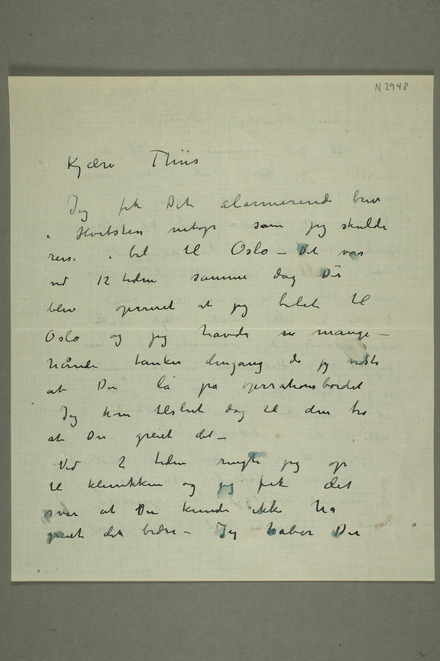 N 2948
Kjære Thiis
Jeg fik Det alarmerende brev
i Hvitsten netop som jeg skulde
reise i bil til Oslo – Det var
ved 12 tiden samme dag De
blev opereret at jeg bilet til
Oslo og jeg havde mange-
hånde tanker dengang da jeg vidste
at De lå på operationsbordet
Jeg kom tilslut dog til den tro
at De greiet det –
Ved 2 tiden ringte jeg op
til klinikken og jeg fik det
svar at De kunde ikke ha
greiet det bedre – Jeg håber De